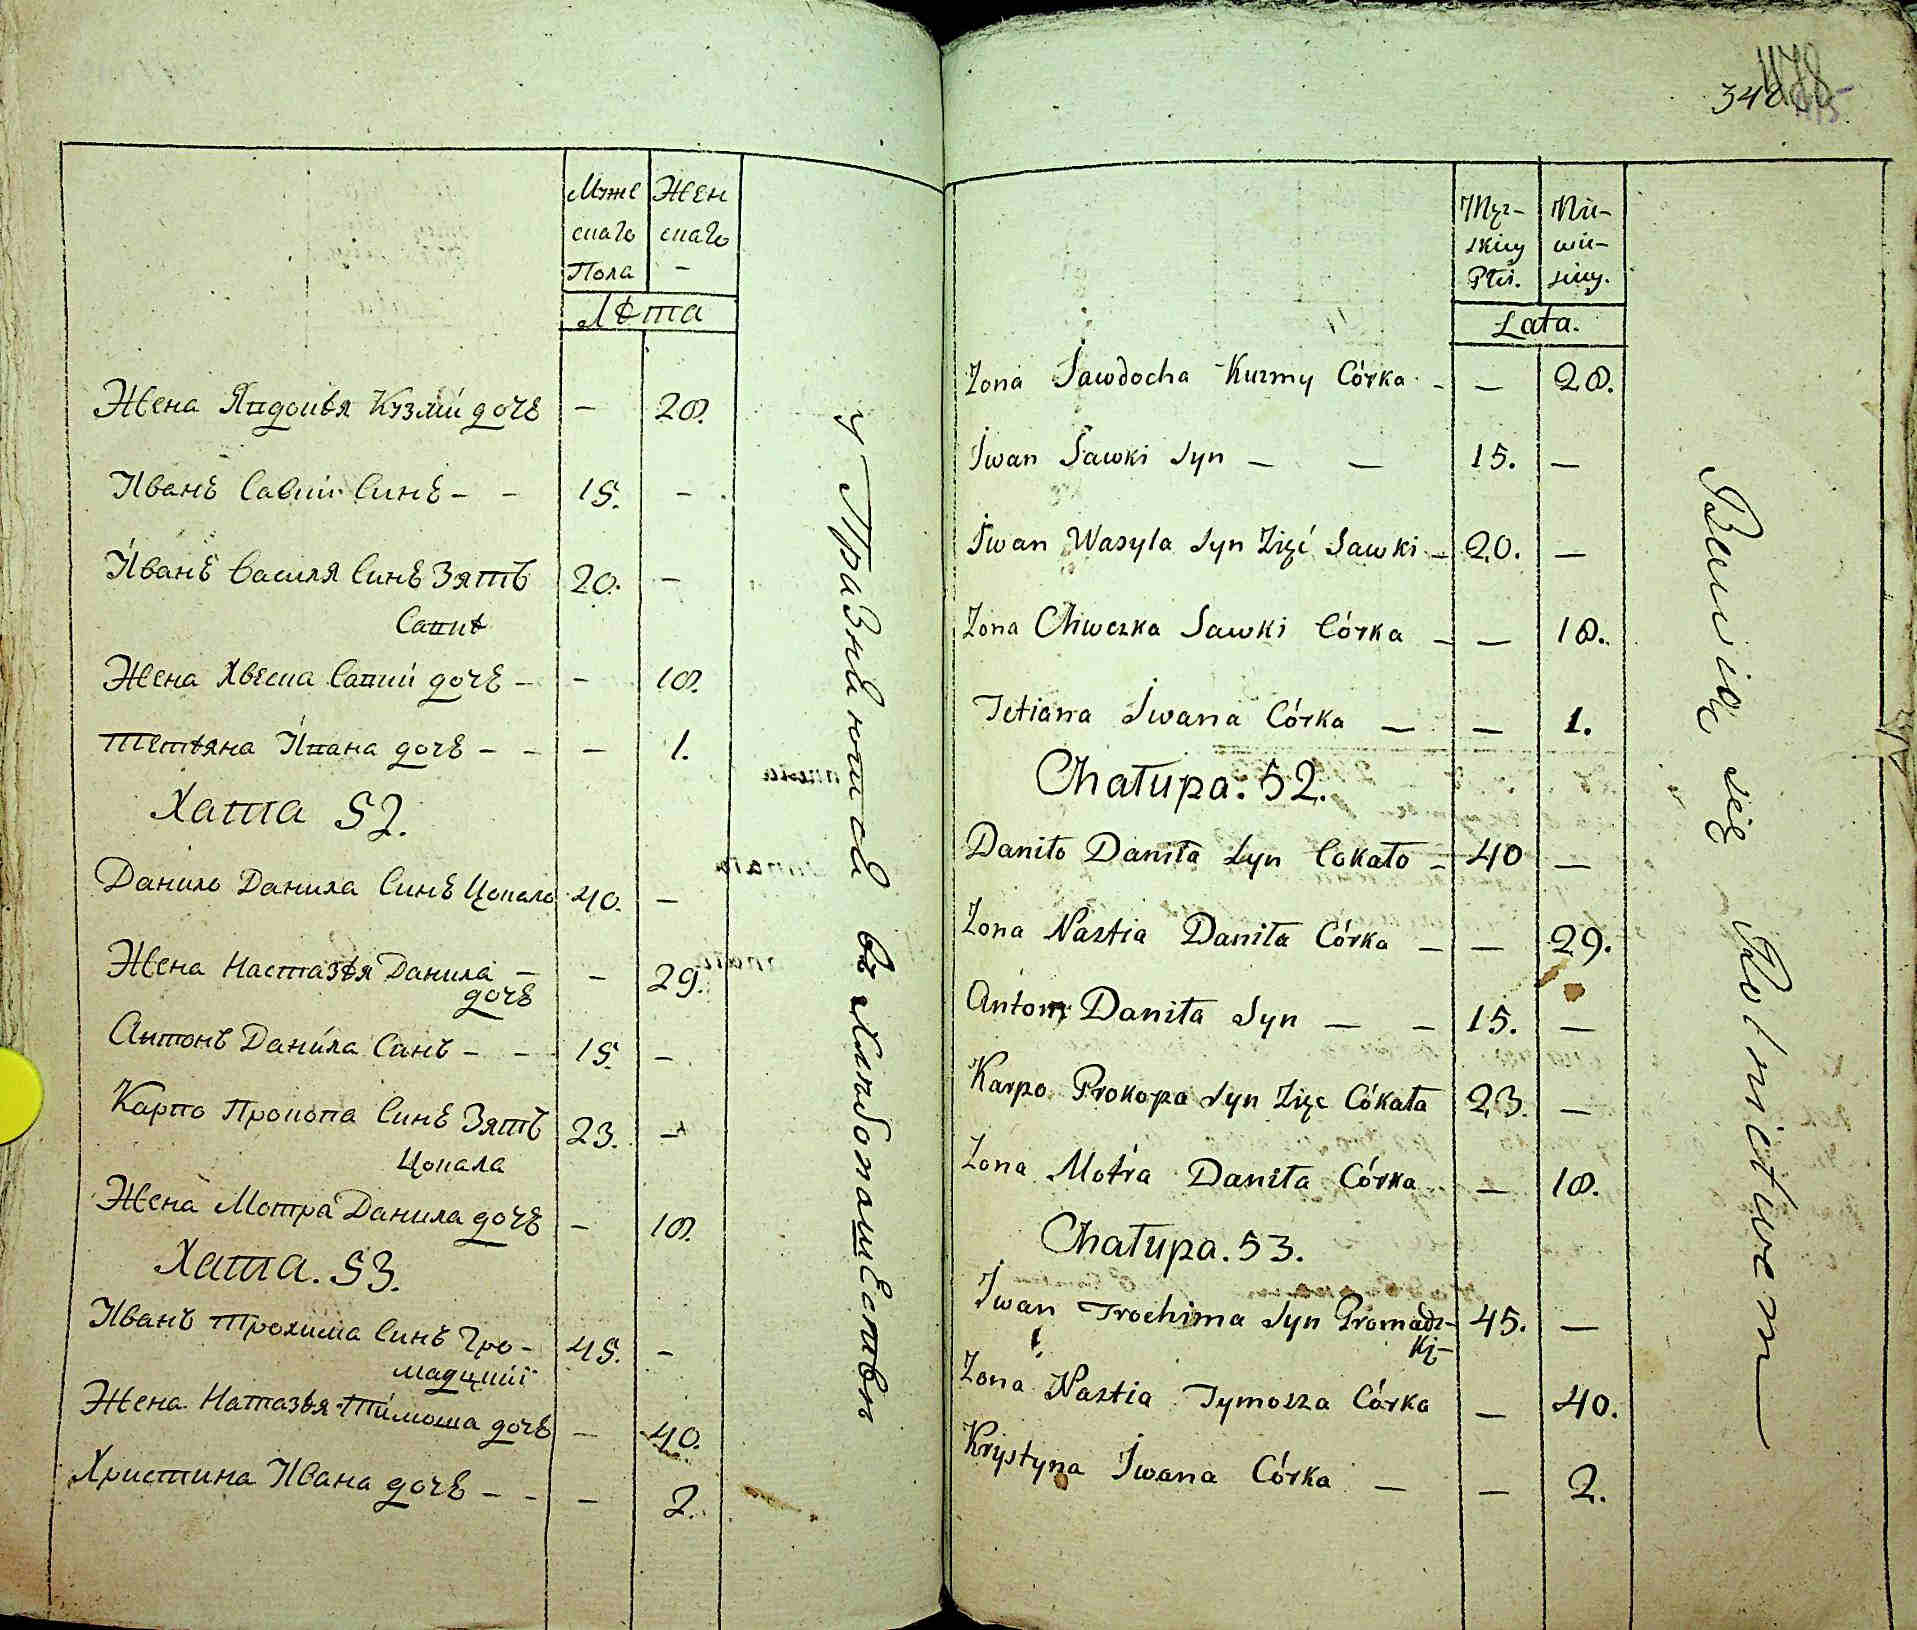 Муже
скаго
Пола
Жен
скаго
–
Лѣта
Жена Явдокѣя Кузми дочъ – 28.
Иванъ Савки Синъ – – 15. –
Иванъ Василя Синъ Зять 20. –
Савкѣ
Жена Хвеска Савки дочъ – – 18.
Тетѣяна Ивана дочъ – – – 1.
Хата 52.
Данило Данила Синъ Цокало 40. –
Жена Настазѣя Данила – – 29.
дочъ
Антонъ Данила Синъ – – 15. –
Карпо Прокопа Синъ Зять 23. –
Цокала
Жена Мотра Данила дочъ – 18.
Хата. 53.
Иванъ Трохима Синъ Гро- 45. –
мадцкий
Жена Натазѣя Тимоша дочъ – 40.
Христина Ивана дочъ – – – 2.
въ Хлибопашествѣ
348
Męz-
skiey
Płci.
Nie-
wie-
sciey.
Lata.
Zona Jawdocha Kuzmy Córka – – 28.
Jwan Sawki Syn – – 15. –
Jwan Wasyla Syn Zięć Sawki – 20. –
Zona Chweska Sawki Córka – – 18.
Tetiana Jwana Córka – – 1.
Chałupa. 52.
Daniło Daniła Syn Cokało – 40 –
Zona Nastia Daniła Córka – – 29.
Anton Daniła Syn – – 15. –
Karpo Prokopa Syn Zięc Cókała 23. –
Zona Motra Daniła Córka – 18.
Chałupa. 53.
Jwan Trochima Syn Gromadz- 45. –
kj –
Zona Nastia Tymosza Córka – 40.
Krystyna Jwana Córka – – 2.
Bawią się Rolnictwem